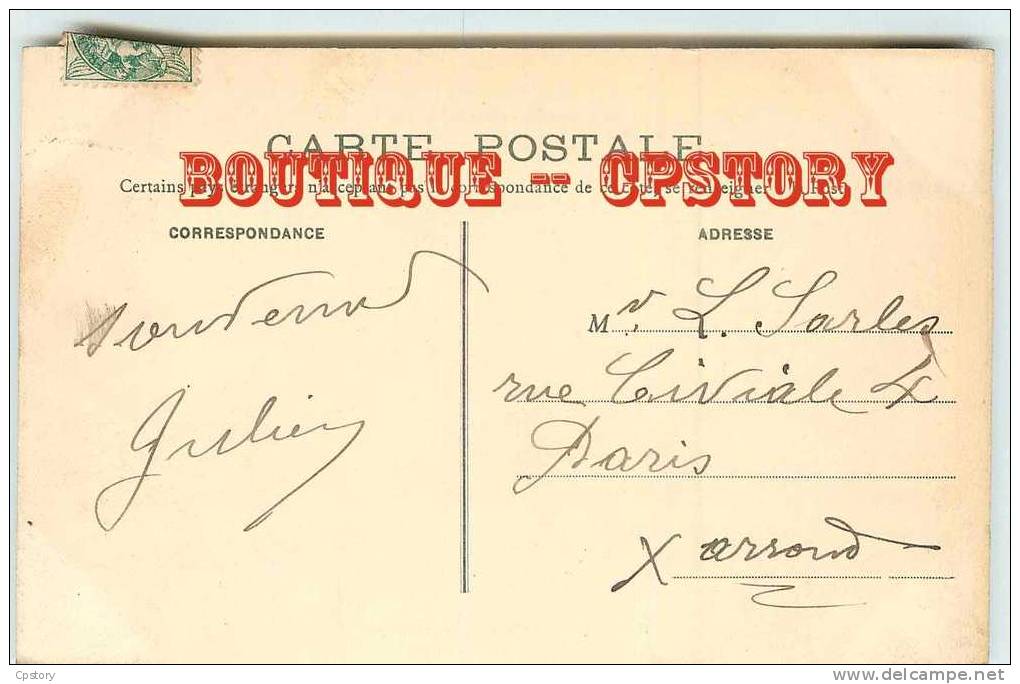 CARTE POSTALE
BOUTIQUE -- CPSTORY
Certains pays étrangers n'acceptant pas la correspondance de ce côté, se renseigner
CORRESPONDANCE
Julien
ADRESSE
Mr. L. Sarles
rue Civiale 4
Paris
X arrond
Cpstory
delcampe.net